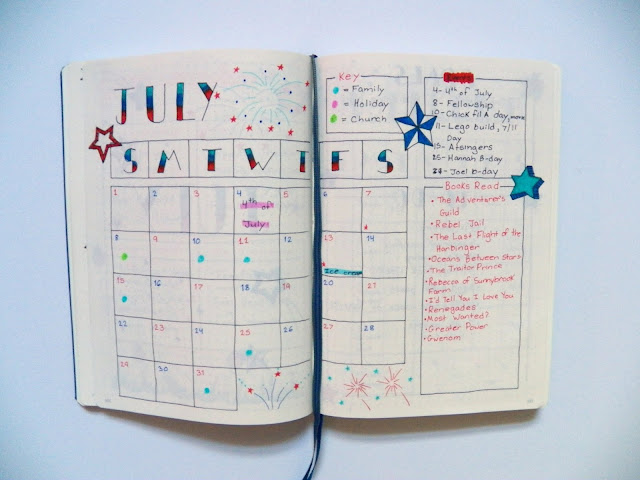 JULY
S M T W T F S
1 2 3 4 5 6 7
4th of
July
8 9 10 11 12 13 14
Ice cream
15 16 17 18 19 20 21
22 23 24 25 26 27 28
29 30 31
Key
= Family
= Holiday
= Church
4- 4th of July
8- Fellowship
10- Chick fil A day, movie
11- Lego build, 7/11
Day
15- Atsingers
25- Hannah B-day
Joel b-day
Books Read
• The Adventurer's
Guild
• Rebel Jail
• The Last Flight of the
Harbinger
• Oceans Between Stars
• The Traitor Prince
• Rebecca of Sunnybrook
Farm
• I'd Tell You I Love You
• Renegades
• Most Wanted?
• Greater Power
• Gwenom